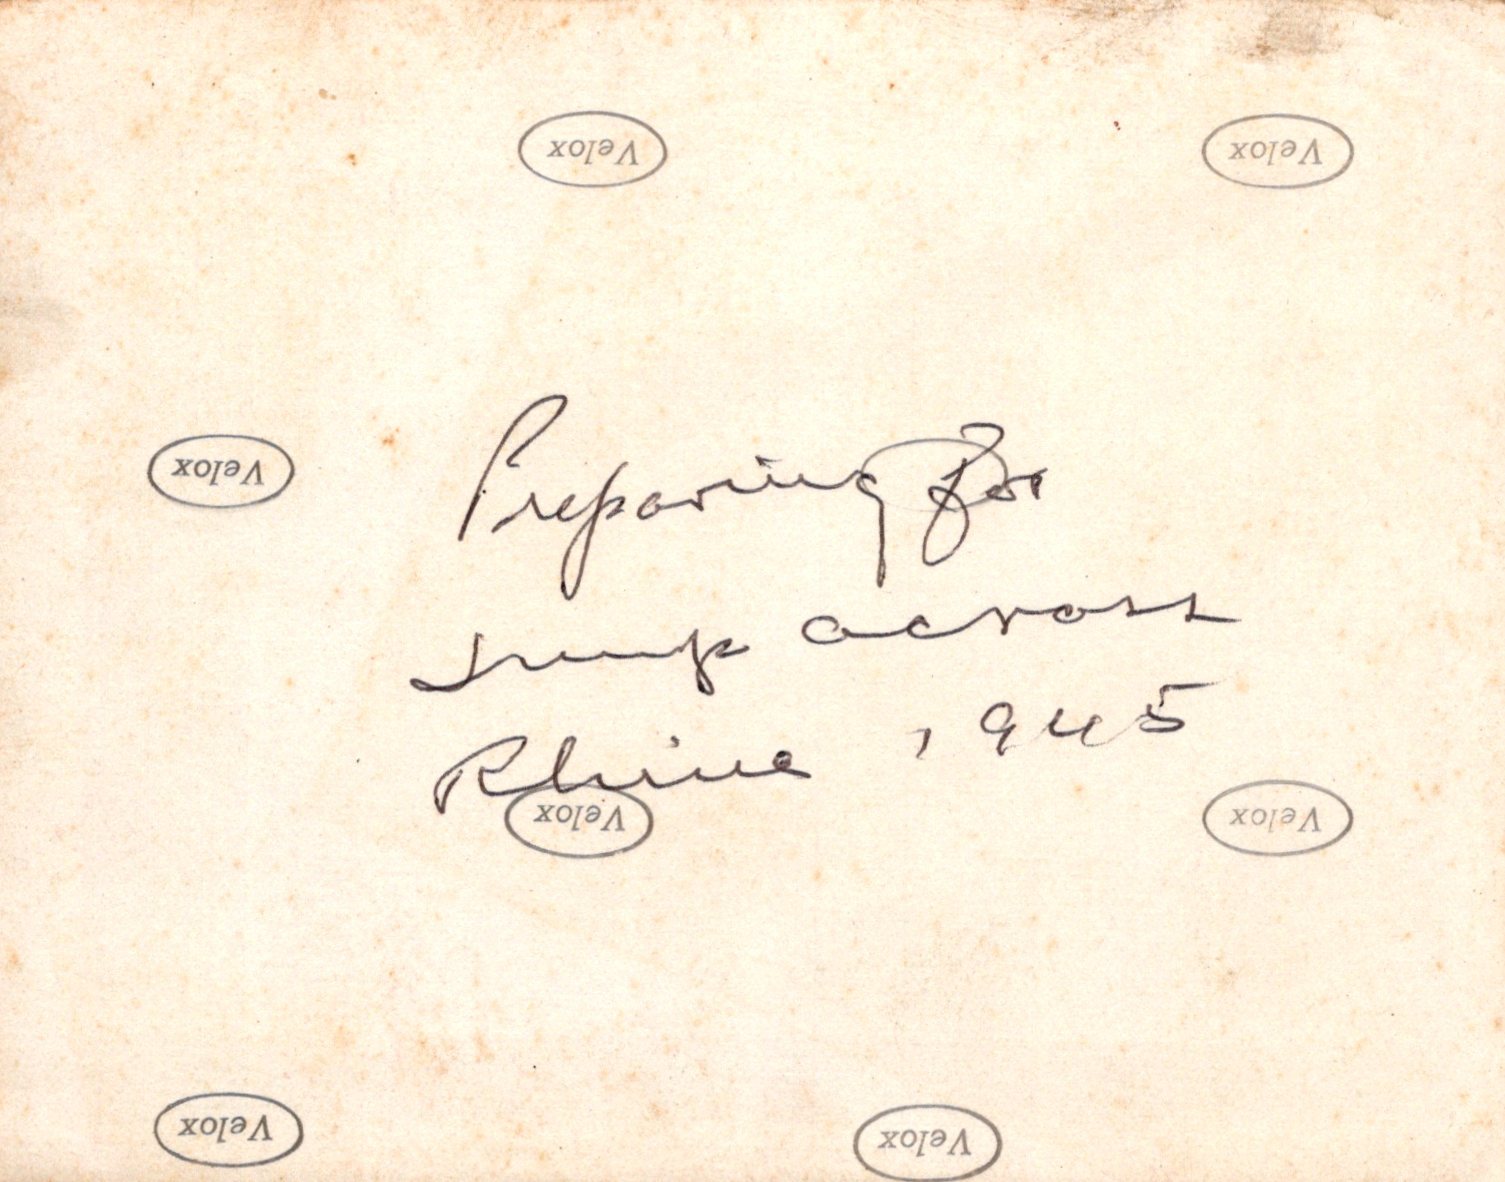 Velox Velox
Velox
Preparing for
Jump across
Rhine 1945
Velox Velox
Velox Velox